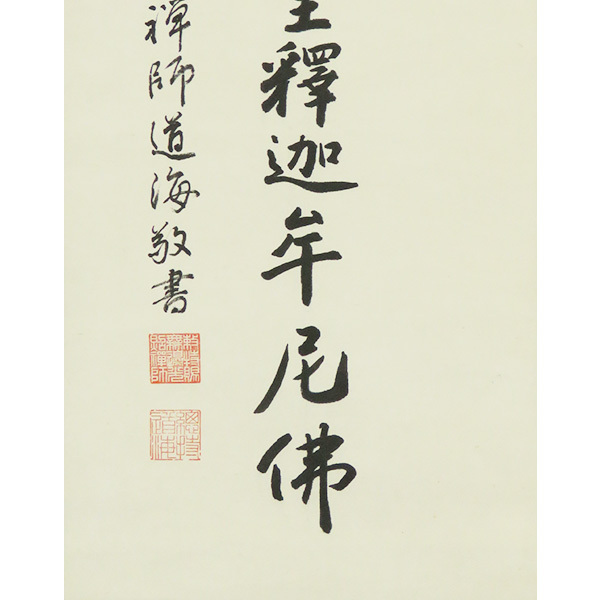 釋迦牟尼佛
禪師道海敬書